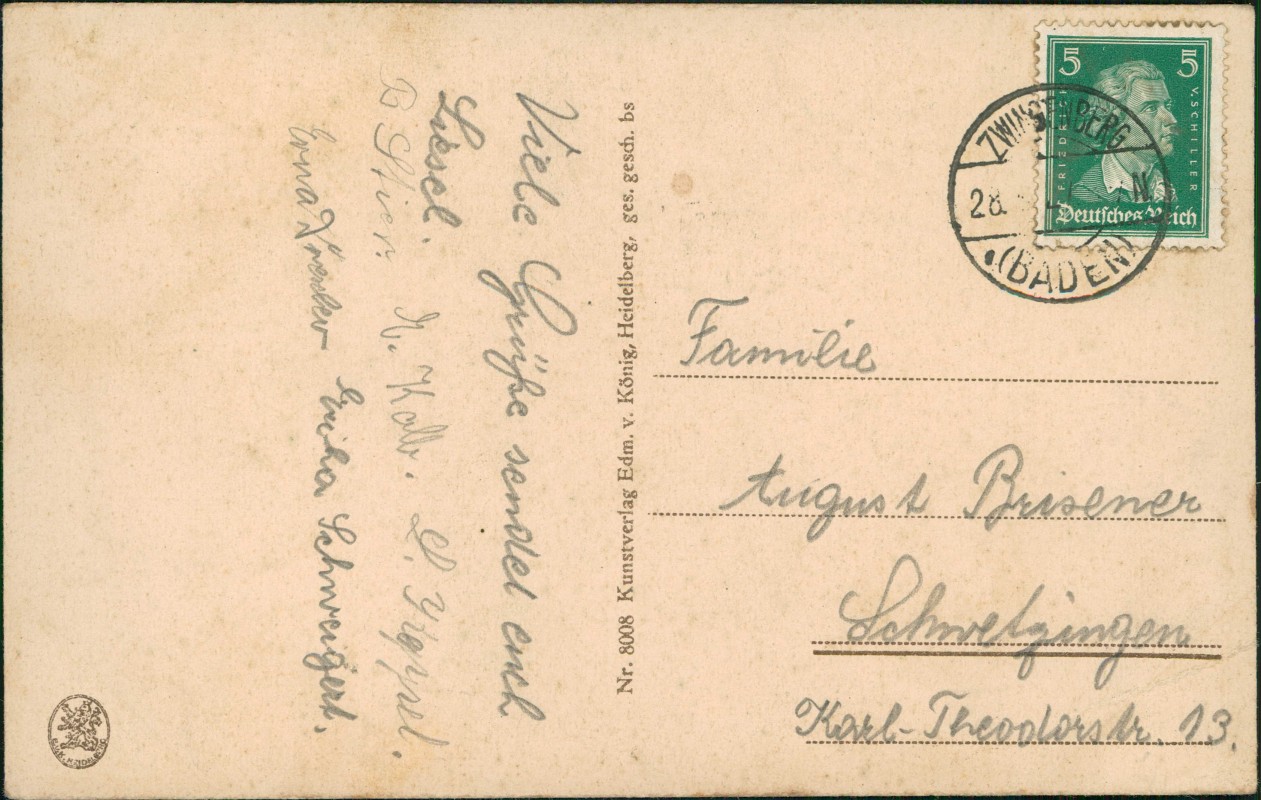 Viele Grüße sendet euch
Liesel.
B Stier. K. Kolb. L. Keppel.
Erna Erika Schweigert.
Nr. 8008 Kunstverlag Edm. v. König, Heidelberg, ges. gesch. bs
5 5
FRIEDRICH V. SCHILLER
Deutsches Reich
ZWINGENBERG
28. N
(BADEN)
Familie
August Brisener
Schwetzingen
Karl-Theodorstr. 13.